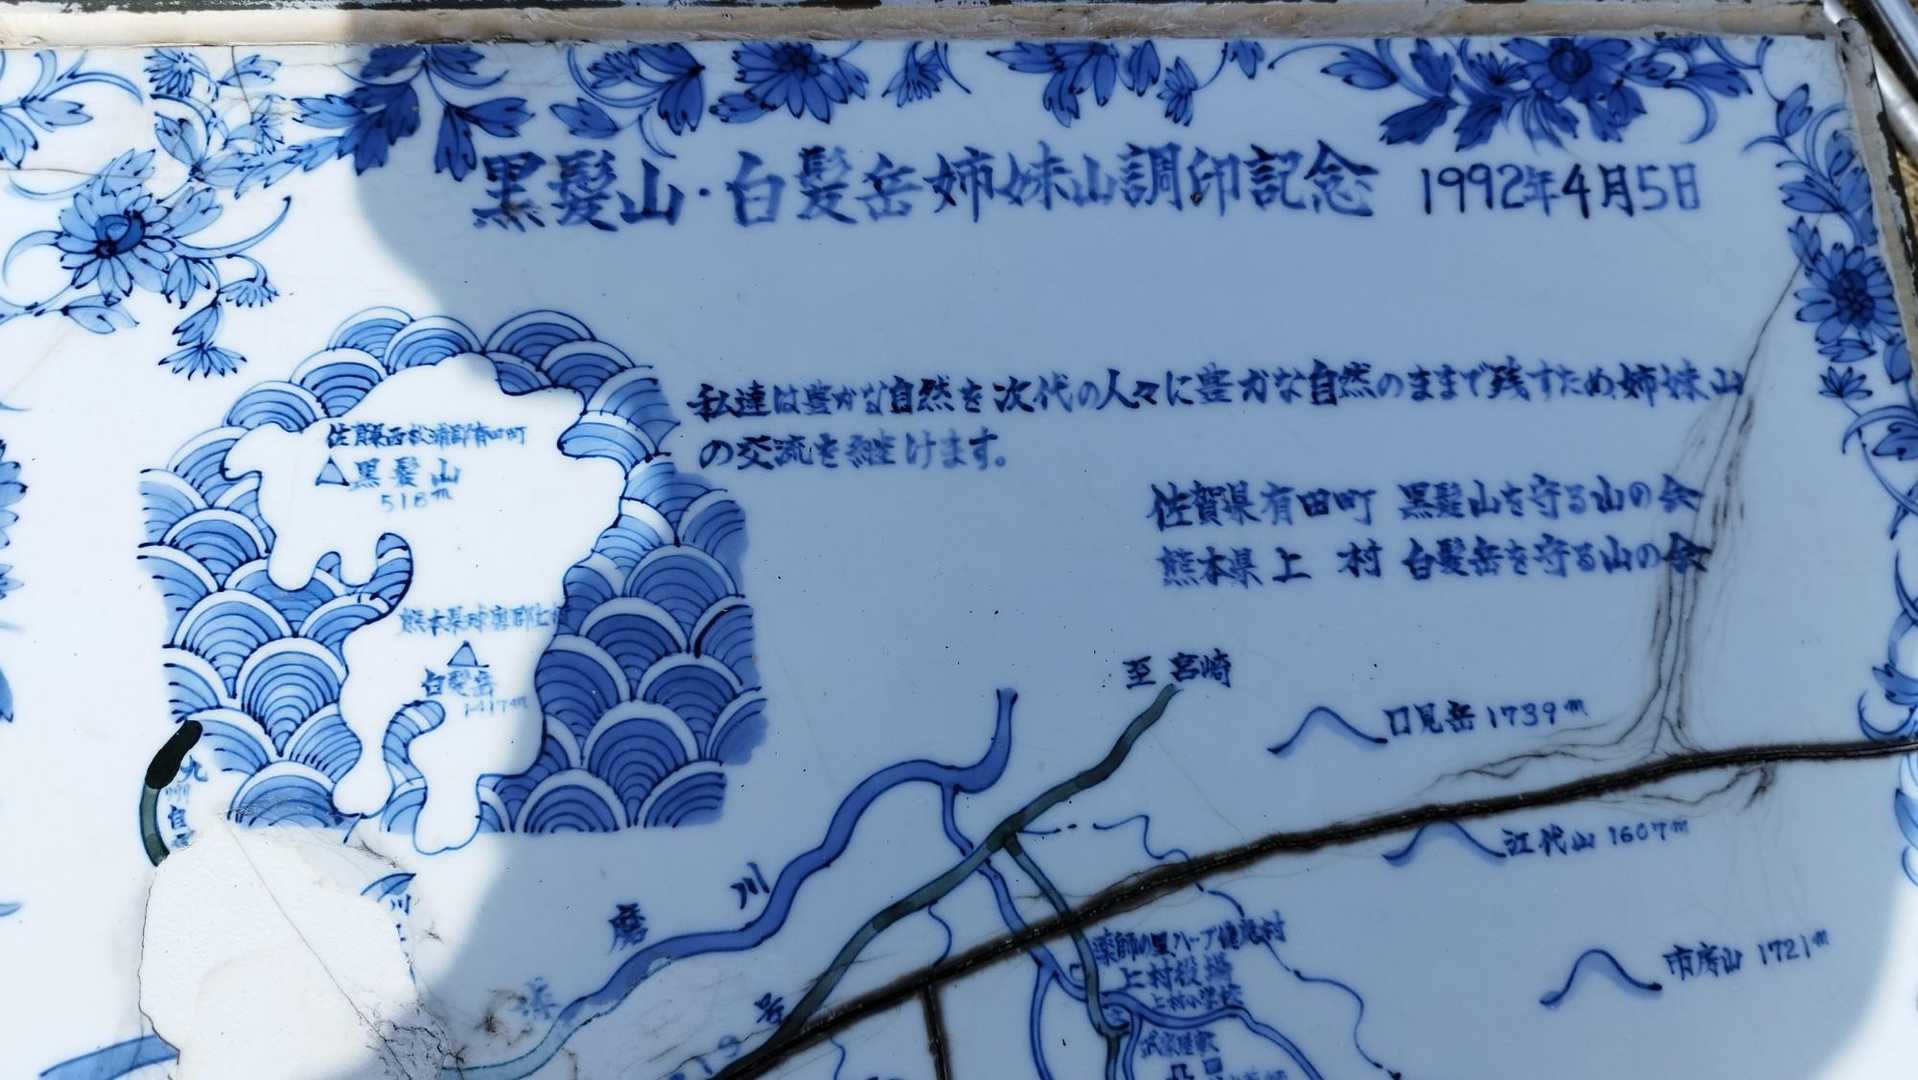 黒髪山・白髪岳姉妹山調印記念 1992年4月5日
私達は豊かな自然を次代の人々に豊かな自然のままで残すため姉妹山
の交流を継けます。
佐賀県有田町 黒髪山を守る山の会
熊本県上 村 白髪岳を守る山の会
佐賀県西松浦郡有田町
黒髪山
518m
熊本県球磨郡上
白髪岳
1417m
至 宮崎
口見岳 1739m
江代山 1607m
市房山 1721m
九州自
川
磨
川
号
薬師の里ハーブ健康村
上村役場
上村小学校